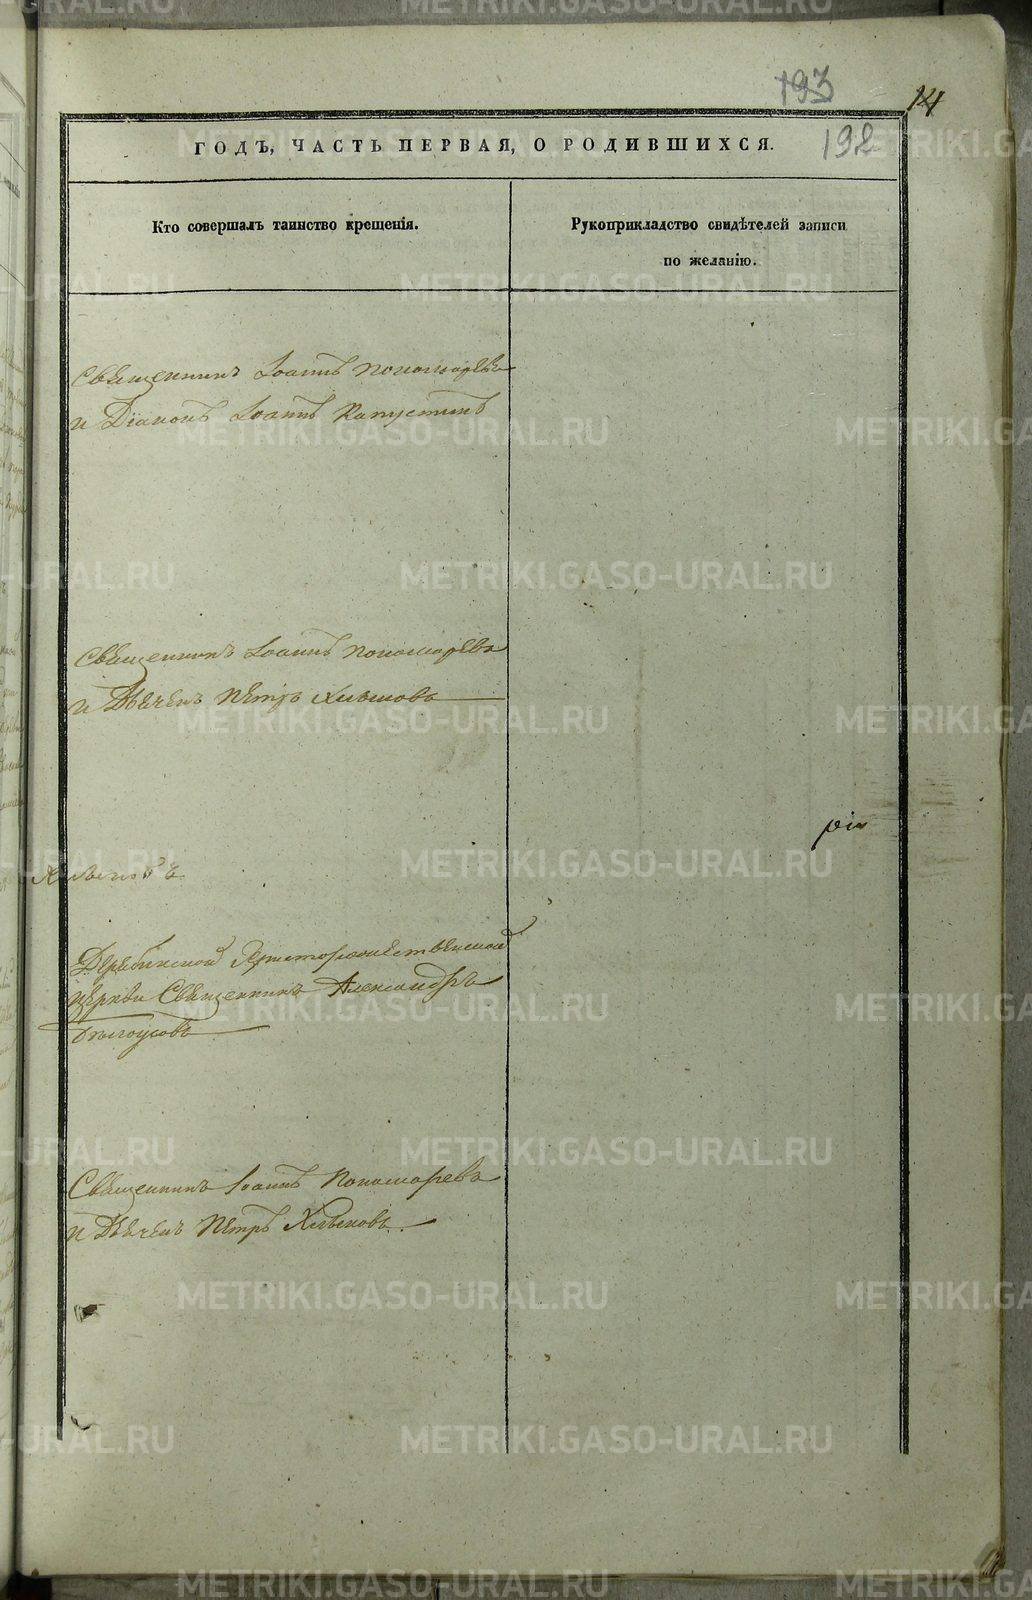 193
14
192
ГОДЪ, ЧАСТЬ ПЕРВАЯ, О РОДИВШИХСЯ.
Кто совершалъ таинство крещенія.
Рукоприкладство свидѣтелей записи
по желанію.
Священникъ Іоаннъ Пономаревъ
и Діаконъ Іоаннъ Капустинъ
Священникъ Іоаннъ Пономаревъ
и Дьячекъ Петръ Хлыновъ
рія
Дерябинской Христорождественской
церкви Священникъ Александръ
Бѣлоусовъ
Священникъ Іоаннъ Пономаревъ
и Дьячекъ Петръ Хлыновъ.
METRIKI.GASO-URAL.RU